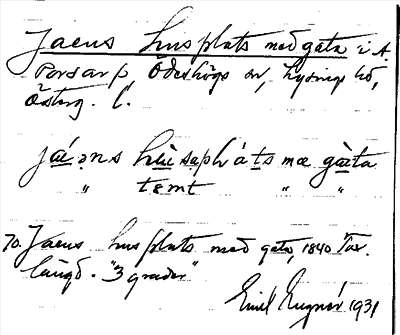 Jaens husplats med gata i A.
Porsarp, Ödeshögs sn, Lysings hd,
Österg. l.
jáiəns hùsəplɑ́ts mæ gàta
" tɛmt " "
70. Jaens husplats med gata, 1840 Tax.
längd. "3 grader"
Emil 1931